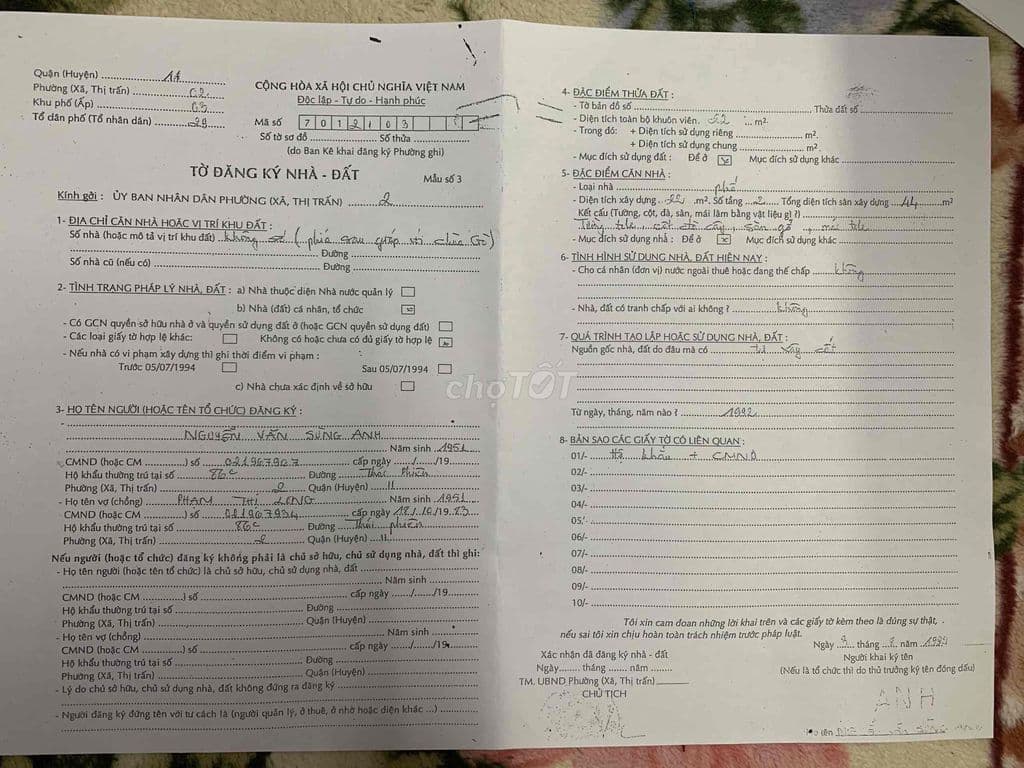 Quận (Huyện) 11
Phường (Xã, Thị trấn) 02
Khu phố (Ấp) 03
Tổ dân phố (Tổ nhân dân) 29
CỘNG HÒA XÃ HỘI CHỦ NGHĨA VIỆT NAM
Độc lập - Tự do - Hạnh phúc
Mã số 7 0 1 2 1 0 3
Số tờ sơ đồ Số thửa
(do Ban Kê khai đăng ký Phường ghi)
TỜ ĐĂNG KÝ NHÀ - ĐẤT Mẫu số 3
Kính gởi : ỦY BAN NHÂN DÂN PHƯỜNG (XÃ, THỊ TRẤN) 2
1- ĐỊA CHỈ CĂN NHÀ HOẶC VỊ TRÍ KHU ĐẤT :
Số nhà (hoặc mô tả vị trí khu đất) không số (phía sau giáp với chùa Gò)
Đường
Số nhà cũ (nếu có) Đường
2- TÌNH TRẠNG PHÁP LÝ NHÀ, ĐẤT : a) Nhà thuộc diện Nhà nước quản lý
b) Nhà (đất) cá nhân, tổ chức
- Có GCN quyền sở hữu nhà ở và quyền sử dụng đất ở (hoặc GCN quyền sử dụng đất)
- Các loại giấy tờ hợp lệ khác: Không có hoặc chưa có đủ giấy tờ hợp lệ
- Nếu nhà có vi phạm xây dựng thì ghi thời điểm vi phạm :
Trước 05/07/1994 Sau 05/07/1994
c) Nhà chưa xác định về sở hữu
3- HỌ TÊN NGƯỜI (HOẶC TÊN TỔ CHỨC) ĐĂNG KÝ :
NGUYỄN VĂN SÙNG ANH
Năm sinh 1951
CMND (hoặc CM ) số 021967907 cấp ngày / /19
Hộ khẩu thường trú tại số 86c Đường Thái Phiên
Phường (Xã, Thị trấn) 2 Quận (Huyện) 11
- Họ tên vợ (chồng) PHẠM THỊ LONG Năm sinh 1951
CMND (hoặc CM ) số 021967934 cấp ngày 18/10/1983
Hộ khẩu thường trú tại số 86c Đường Thái phiên
Phường (Xã, Thị trấn) 2 Quận (Huyện) 11
Nếu người (hoặc tổ chức) đăng ký không phải là chủ sở hữu, chủ sử dụng nhà, đất thì ghi:
- Họ tên người (hoặc tên tổ chức) là chủ sở hữu, chủ sử dụng nhà, đất
Năm sinh
CMND (hoặc CM ) số cấp ngày / /19
Hộ khẩu thường trú tại số Đường
Phường (Xã, Thị trấn) Quận (Huyện)
- Họ tên vợ (chồng) Năm sinh
CMND (hoặc CM ) số cấp ngày / /19
Hộ khẩu thường trú tại số Đường
Phường (Xã, Thị trấn) Quận (Huyện)
- Lý do chủ sở hữu, chủ sử dụng nhà, đất không đứng ra đăng ký
- Người đăng ký đứng tên với tư cách là (người quản lý, ở thuê, ở nhờ hoặc diện khác ...)
4- ĐẶC ĐIỂM THỬA ĐẤT :
- Tờ bản đồ số Thửa đất số
- Diện tích toàn bộ khuôn viên 22 m².
- Trong đó: + Diện tích sử dụng riêng m².
+ Diện tích sử dụng chung m².
- Mục đích sử dụng đất : Để ở Mục đích sử dụng khác
5- ĐẶC ĐIỂM CĂN NHÀ :
- Loại nhà phố
- Diện tích xây dựng 22 m². Số tầng 2 Tổng diện tích sàn xây dựng 44 m²
Kết cấu (Tường, cột, đà, sàn, mái làm bằng vật liệu gì ?)
Tường tole, cột đà cây, sàn gỗ, mái tole
- Mục đích sử dụng nhà : Để ở Mục đích sử dụng khác
6- TÌNH HÌNH SỬ DỤNG NHÀ, ĐẤT HIỆN NAY :
- Cho cá nhân (đơn vị) nước ngoài thuê hoặc đang thế chấp không
- Nhà, đất có tranh chấp với ai không ? không
7- QUÁ TRÌNH TẠO LẬP HOẶC SỬ DỤNG NHÀ, ĐẤT :
Nguồn gốc nhà, đất do đâu mà có tự xây cất
Từ ngày, tháng, năm nào ? 1992
8- BẢN SAO CÁC GIẤY TỜ CÓ LIÊN QUAN :
01/- Hộ khẩu + CMND
02/-
03/-
04/-
05/-
06/-
07/-
08/-
09/-
10/-
Tôi xin cam đoan những lời khai trên và các giấy tờ kèm theo là đúng sự thật,
nếu sai tôi xin chịu hoàn toàn trách nhiệm trước pháp luật.
Ngày tháng năm 1999
Xác nhận đã đăng ký nhà - đất
Ngày tháng năm
TM. UBND Phường (Xã, Thị trấn)
CHỦ TỊCH
Người khai ký tên
(Nếu là tổ chức thì do thủ trưởng ký tên đóng dấu)
ANH
Họ tên
chợTỐT